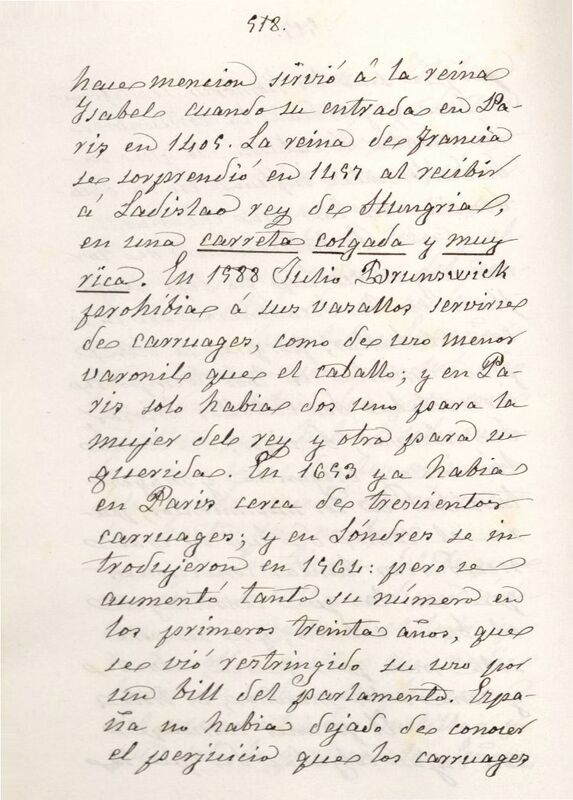 518.
hace mencion sirvió á la reina
Ysabel cuando su entrada en Pa-
ris en 1405. La reina de Francia
se sorprendió en 1457 al recibir
á Ladislao rey de Hungria,
en una carreta colgada y muy
rica. En 1588 Julio Brunswick
prohibia á sus vasallos servirse
de carruages, como de uso menos
varonil que el caballo; y en Pa-
ris solo habia dos uno para la
mujer del rey y otro para su
querida. En 1653 ya habia
en Paris cerca de trescientos
carruages; y en Lóndres se in-
trodujeron en 1564: pero se
aumentó tanto su número en
los primeros treinta años, que
se vió restringido su uso por
un bill del parlamento. Espa-
ña no habia dejado de conocer
el perjuicio que los carruages